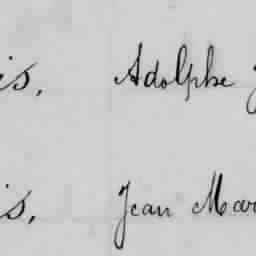 is, Adolphe
is, Jean Mar